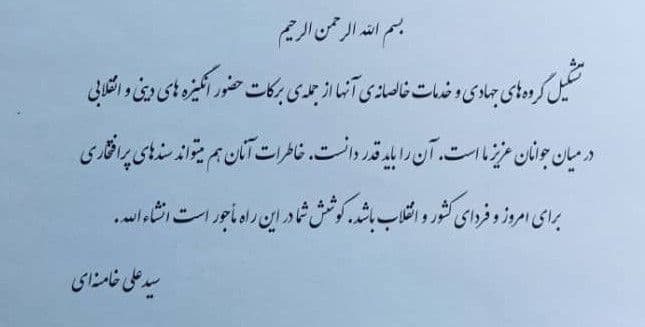 بسم الله الرحمن الرحیم
تشکیل گروه‌های جهادی و خدمات خالصانه‌ی آنها از جمله‌ی برکات حضور انگیزه های دینی و انقلابی
در میان جوانان عزیز ما است. آن را باید قدر دانست. خاطرات آنان هم میتواند سندهای پرافتخاری
برای امروز و فردای کشور و انقلاب باشد. کوشش شما در این راه مأجور است انشاءالله.
سید علی خامنه‌ای